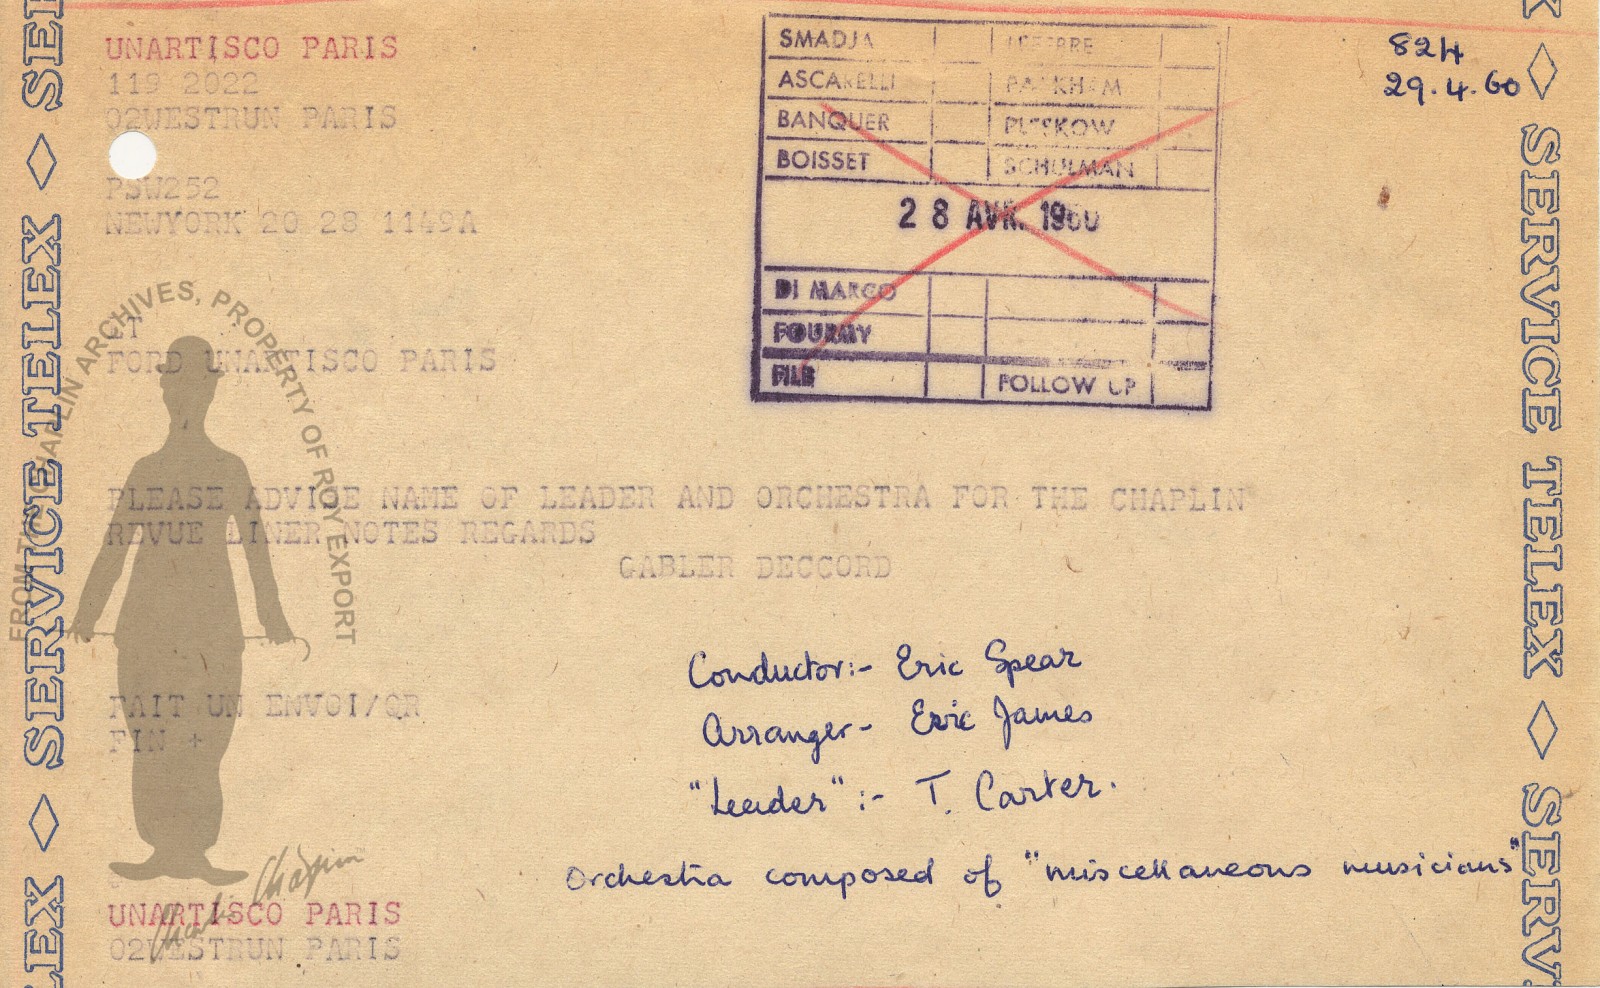 UNARTISCO PARIS
119 2022
02WESTRUN PARIS
PSW252
NEWYORK 20 28 1149A
LT
FORD UNARTISCO PARIS
PLEASE ADVICE NAME OF LEADER AND ORCHESTRA FOR THE CHAPLIN
REVUE LINER NOTES REGARDS
GABLER DECCORD
FAIT UN ENVOI/QR
FIN +
UNARTISCO PARIS
02WESTRUN PARIS
SMADJA LEFEBRE
ASCARELLI PARKHAM
BANQUER PLESKOW
BOISSET SCHULMAN
28 AVR. 1960
DI MARCO
FOURMY
FILE FOLLOW UP
824
29.4.60
Conductor:- Eric Spear
Arranger- Eric James
"Leader":- T. Carter.
Orchestra composed of "miscellaneous musicians"
FROM THE CHAPLIN ARCHIVES, PROPERTY OF ROY EXPORT
Charlie Chaplin
SERVICE TELEX ◇ SERVICE TELEX
SERVICE TELEX ◇ SERVICE TELEX